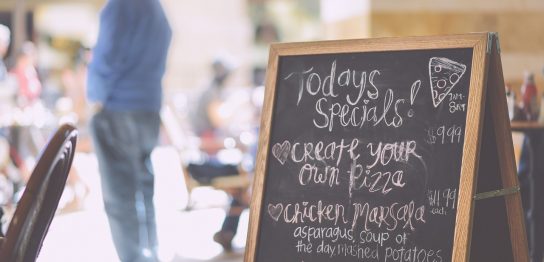 Todays
Specials!
Create your
own pizza
9.99
Chicken Marsala
asparagus, soup of
the day, mashed potatoes
each